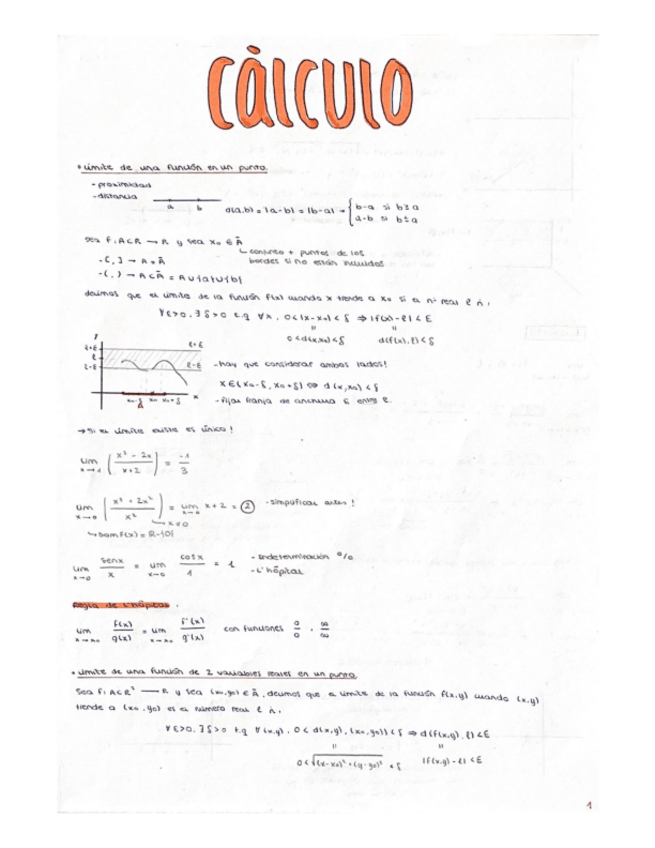 CÀLCULO
• Límite de una función en un punto.
- proximidad
- distancia
a b
d(a,b) = |a-b| = |b-a| → { b-a si b≥a
a-b si b≤a
Sea f: A⊂R → R y sea x₀ ∈ Ā
conjunto + puntos de los
bordes si no están incluidos
- [, ] → A = Ā
- (, ) → A⊂Ā = A∪{a}∪{b}
decimos que el límite de la función f(x) cuando x tiende a x₀ si el nº real ℓ si,
∀ε>0, ∃δ>0 t.q ∀x, 0<|x-x₀|<δ ⇒ |f(x)-ℓ|<ε
0<d(x,x₀)<δ d(f(x),ℓ)<δ
y
ℓ+ε
ℓ
ℓ-ε
ℓ+ε
ℓ-ε
x
x₀-δ x₀ x₀+δ
- hay que considerar ambos lados!
x∈(x₀-δ, x₀+δ) ⇔ d(x,x₀)<δ
- fijar franja de anchura ε entre ℓ.
→ Si el límite existe es único!
lim x→1 (x³ - 2x / x+2) = -1/3
lim x→0 (x³ + 2x² / x²) = lim x→0 x+2 = 2 - simplificar antes!
x≠0
Dom f(x) = R-{0}
lim x→0 senx / x = lim x→0 cosx / 1 = 1
- Indeterminación 0/0
- L'hôpital
Regla de L'hôpital.
lim x→x₀ f(x) / g(x) = lim x→x₀ f'(x) / g'(x) con funciones 0/0, ∞/∞
• Límite de una función de 2 variables reales en un punto.
Sea f: A⊂R² → R y sea (x₀,y₀) ∈ Ā, decimos que el límite de la función f(x,y) cuando (x,y)
tiende a (x₀,y₀) es el número real ℓ si,
∀ε>0, ∃δ>0 t.q ∀(x,y), 0<d(x,y),(x₀,y₀))<δ ⇒ d(f(x,y),ℓ)<ε
0<√(x-x₀)²+(y-y₀)² <δ |f(x,y)-ℓ|<ε
1